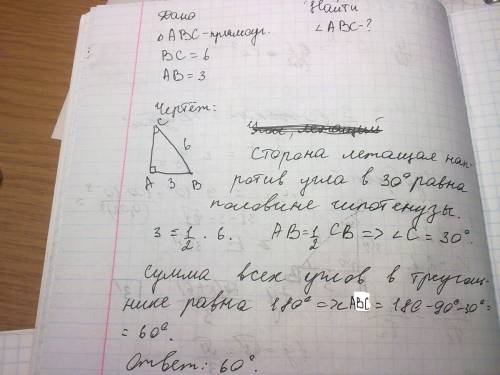 Дано
Найти
△ABC-прямоуг.
∠ABC-?
BC = 6
AB = 3
Чертёж:
C
6
A 3 B
Сторона лежащая нап-
ротив угла в 30° равна
половине гипотенузы.
3 = 1/2 · 6. AB = 1/2 CB => ∠C = 30°.
Сумма всех углов в треуголь-
нике равна 180° => ABC = 180-90°-30°=
= 60°.
Ответ: 60°.